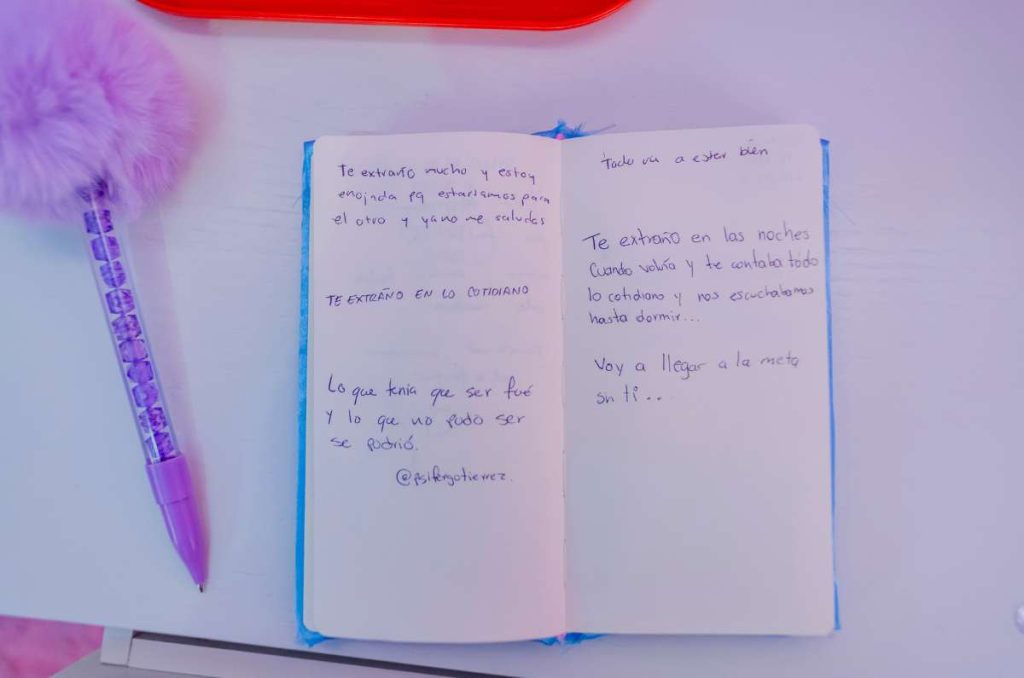 Te extraño mucho y estoy
enojada pq estaríamos para
el otro y ya no me saludas
TE EXTRAÑO EN LO COTIDIANO
Lo que tenía que ser fué
y lo que no pudo ser
se pudrió.
@psifergotierrez.
Todo va a estar bien
Te extraño en las noches
Cuando volvía y te contaba todo
lo cotidiano y nos escuchabamos
hasta dormir...
Voy a llegar a la meta
sin ti...